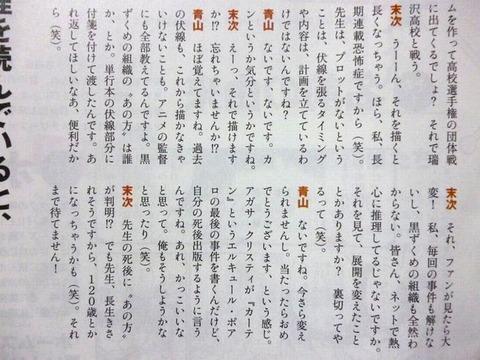 ムを作って高校選手権の団体戦
に出てくるでしょ? それで瑞
沢高校と戦う。
末次 うーーん、それを描くと
長くなっちゃう。ほら、私、長
期連載恐怖症ですから(笑)。
先生は、プロットがないという
ことは、伏線を張るタイミング
や内容は、計画を立てているわ
けではないんですね?
青山 ないです、ないです。カ
ンというか気分というかですね。
末次 えーっ、それで描けます
か!? 忘れちゃいませんか!?
青山 ほぼ覚えてますね。過去
の伏線も、これから描かなきゃ
いけないことも。アニメの監督
にも全部教えてるんですよ。黒
ずくめの組織の“あの方”は誰
か、とか。単行本の伏線部分に
付箋を付けて渡したんです。あ
れ返してほしいなあ、便利だか
ら(笑)。
末次 それ、ファンが見たら大
変! 私、毎回の事件も解けな
いし、黒ずくめの組織も全然わ
からない。皆さん、ネットで熱
心に推理してるじゃないですか。
それを見て、展開を変えたこと
とかありますか? 裏切ってや
るって(笑)。
青山 ないですね。今さら変え
られませんし。当たったらおめ
でとうございます、という感じ。
アガサ・クリスティが『カーテ
ン』というエルキュール・ポア
ロの最後の事件を書くんだけど、
自分の死後出版するように言う
んですね。あれ、かっこいいな
と思って。俺もそうしようかな
と思ったり(笑)。
末次 先生の死後に“あの方”
が判明!? でも先生、長生きさ
れそうですから、120歳とか
になっちゃうかも(笑)。それ
まで待てません!
を読んでいると、